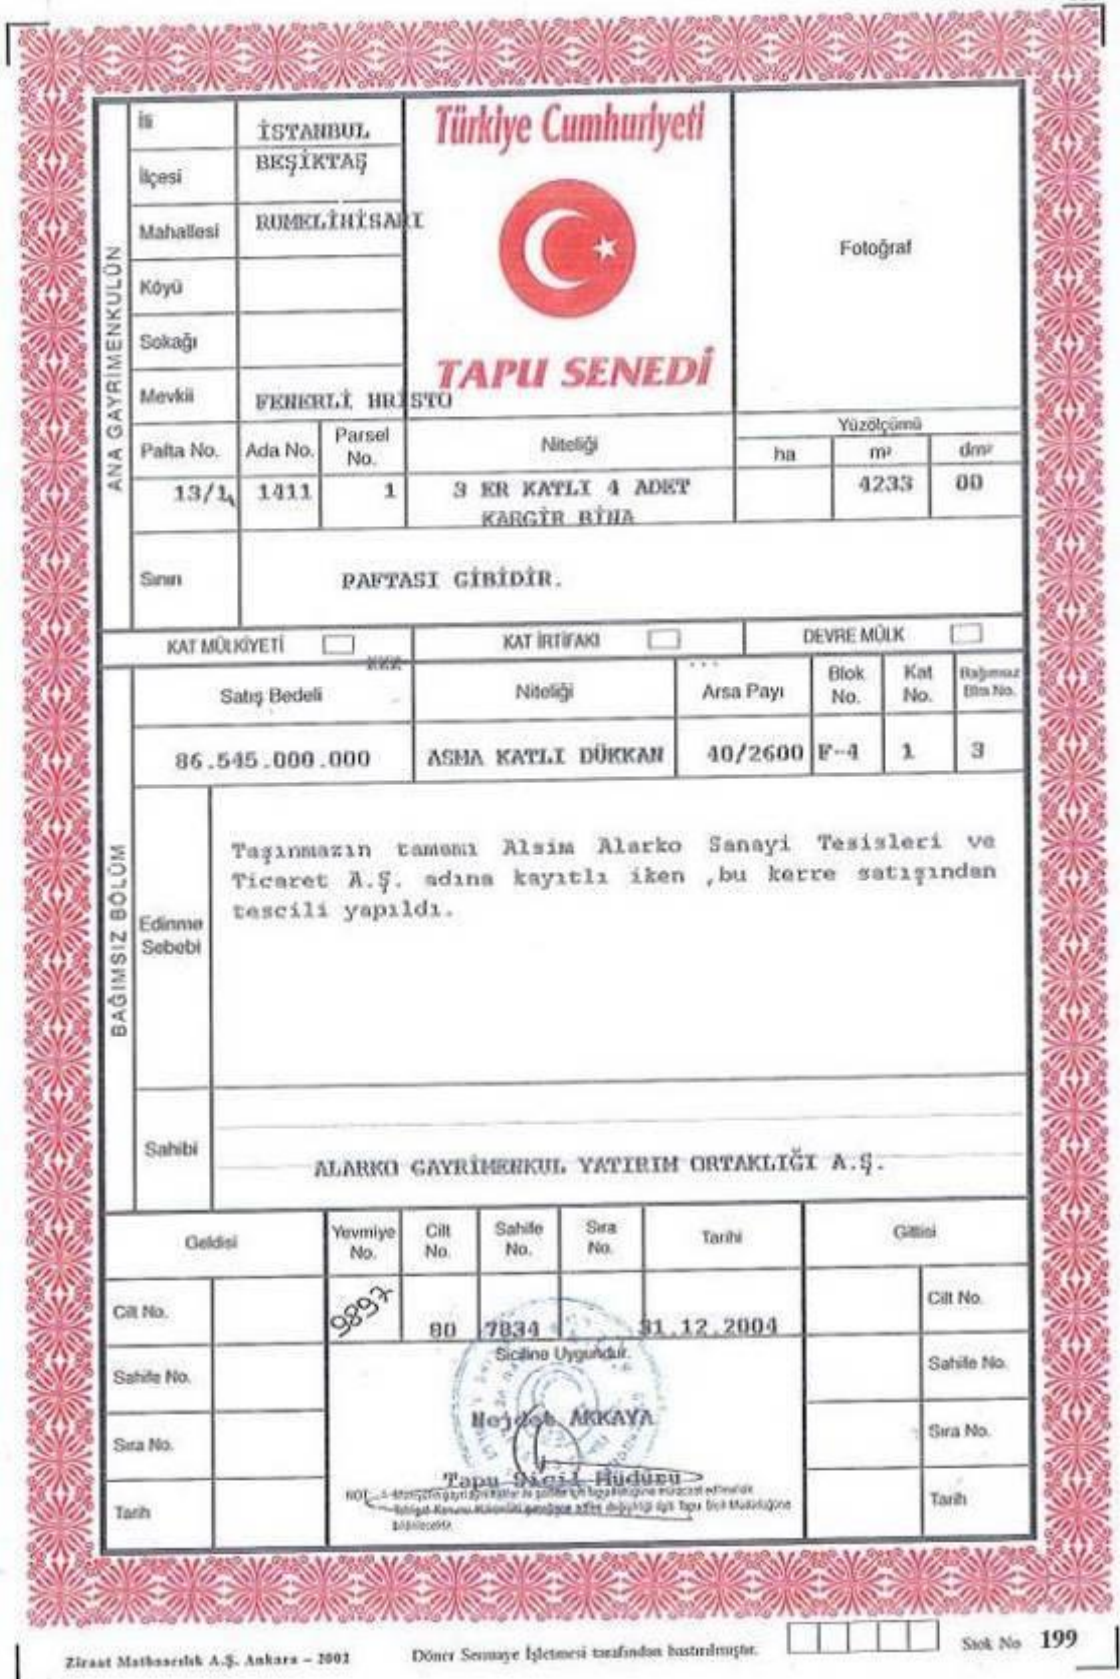 Türkiye Cumhuriyeti
TAPU SENEDİ
Fotoğraf
ANA GAYRİMENKULÜN
İli İSTANBUL
İlçesi BEŞİKTAŞ
Mahallesi RUMELİHİSARI
Köyü
Sokağı
Mevkii FENERLİ HRİSTO
Pafta No. Ada No. Parsel No. Niteliği Yüzölçümü
ha m² dm²
13/1 1411 1 3 ER KATLI 4 ADET 4233 00
KARGİR BİNA
Sınırı PAFTASI GİBİDİR.
KAT MÜLKİYETİ KAT İRTİFAKI DEVRE MÜLK
BAĞIMSIZ BÖLÜM
Satış Bedeli Niteliği Arsa Payı Blok No. Kat No. Bağımsız Blm No.
86.545.000.000 ASMA KATLI DÜKKAN 40/2600 F-4 1 3
Edinme Sebebi
Taşınmazın tamamı Alsim Alarko Sanayi Tesisleri ve
Ticaret A.Ş. adına kayıtlı iken ,bu kerre satışından
tescili yapıldı.
Sahibi
ALARKO GAYRİMENKUL YATIRIM ORTAKLIĞI A.Ş.
Geldisi Yevmiye No. Cilt No. Sahife No. Sıra No. Tarihi Gittisi
Cilt No. 9897 80 7834 31.12.2004 Cilt No.
Siciline Uygundur.
Sahife No. Sahife No.
Nejdet AKKAYA
Sıra No. Sıra No.
Tapu Sicil Müdürü
Tarih Tarih
NOT
Ziraat Matbaacılık A.Ş. Ankara – 2002 Döner Sermaye İşletmesi tarafından bastırılmıştır. Stok No 199